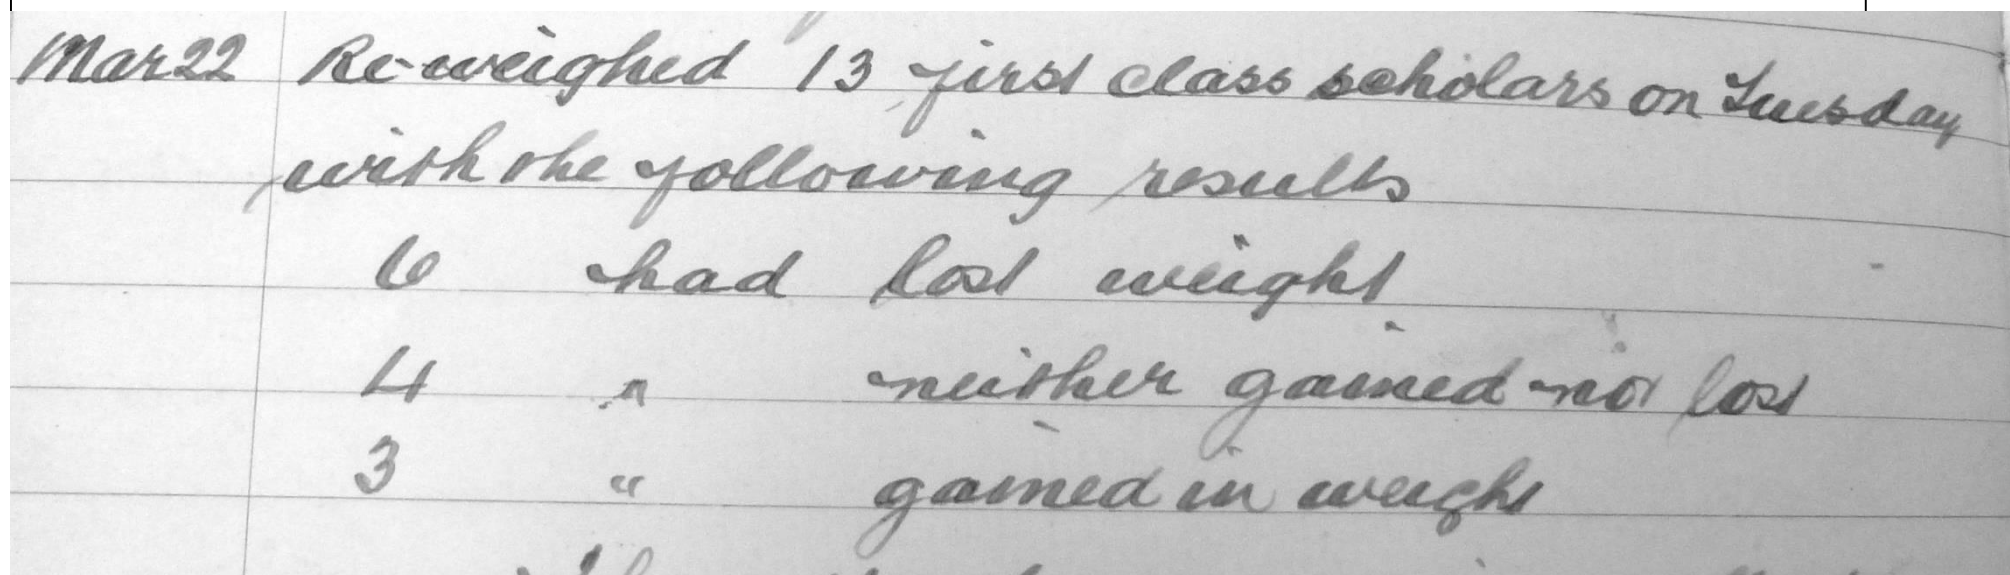 Mar 22 Re-weighed 13 first class scholars on Tuesday
with the following results
6 had lost weight
4 " neither gained nor lost
3 " gained in weight